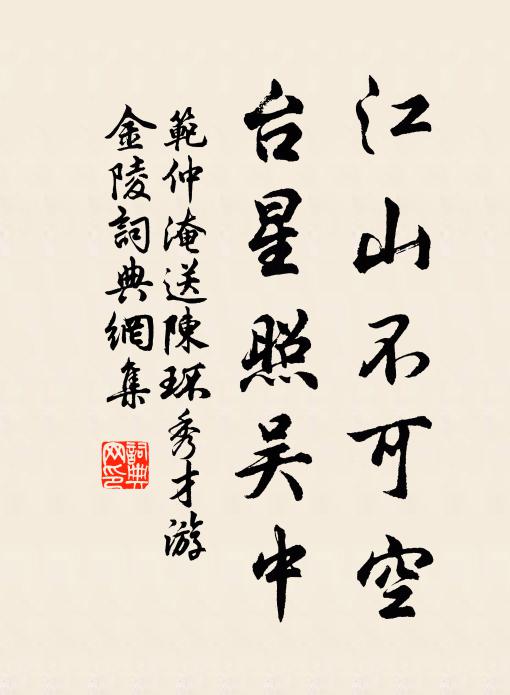 江山不可空
台星照吴中
範仲淹送陳环秀才游
金陵詞典網集
詞典
网印